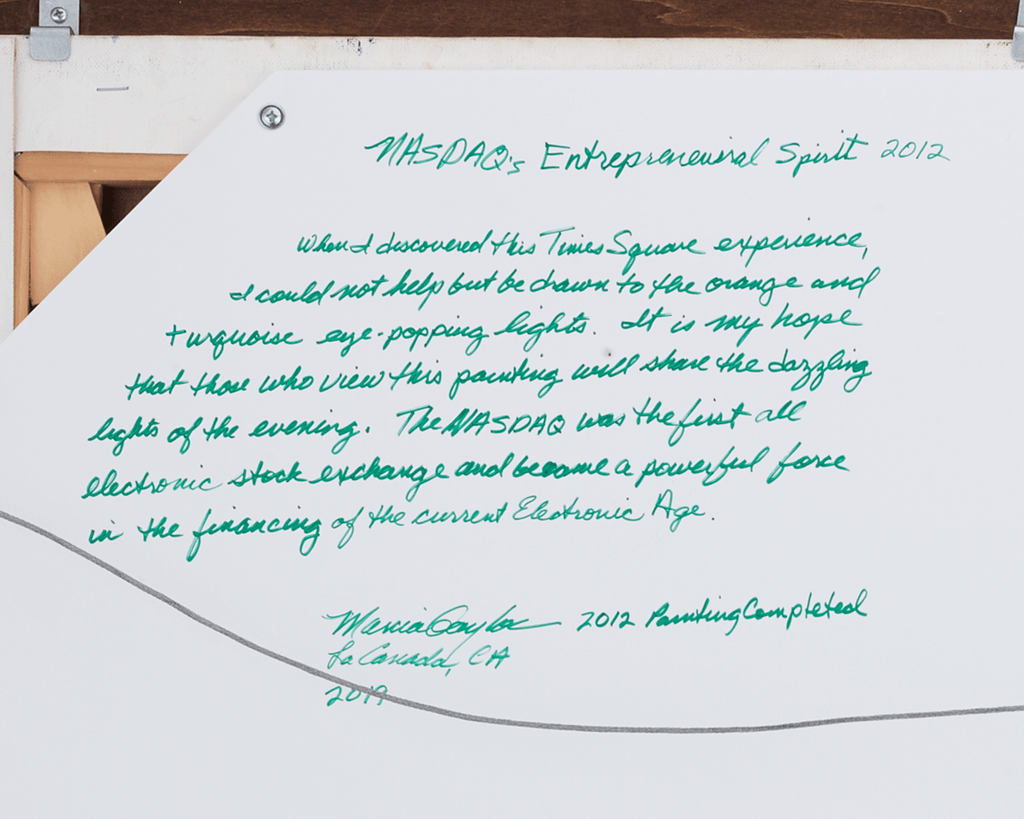 NASDAQ's Entrepreneurial Spirit 2012
When I discovered this Times Square experience,
I could not help but be drawn to the orange and
turquoise eye-popping lights. It is my hope
that those who view this painting will share the dazzling
lights of the evening. The NASDAQ was the first all
electronic stock exchange and became a powerful force
in the financing of the current Electronic Age.
Marcia 2012 Painting Completed
La Canada, CA
2019